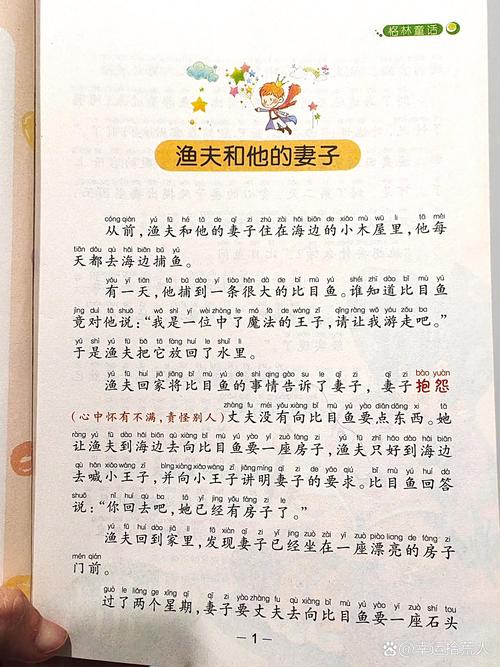 格林童话
渔夫和他的妻子
cóng qián yú fū hé tā de qī zi zhù zài hǎi biān de xiǎo mù wū lǐ tā měi
从前,渔夫和他的妻子住在海边的小木屋里,他每
tiān dōu qù hǎi biān bǔ yú
天都去海边捕鱼。
yǒu yì tiān tā bǔ dào yì tiáo hěn dà de bǐ mù yú shéi zhī dào bǐ mù yú
有一天,他捕到一条很大的比目鱼。谁知道比目鱼
jìng duì tā shuō wǒ shì yí wèi zhòng le mó fǎ de wáng zǐ qǐng ràng wǒ yóu zǒu ba
竟对他说:“我是一位中了魔法的王子,请让我游走吧。”
yú shì yú fū bǎ tā fàng huí le shuǐ lǐ
于是渔夫把它放回了水里。
yú fū huí jiā jiāng bǐ mù yú de shì qing gào su le qī zi qī zi bào yuàn
渔夫回家将比目鱼的事情告诉了妻子,妻子抱怨
zhàng fu méi yǒu xiàng bǐ mù yú yào diǎn dōng xi tā
(心中怀有不满,责怪别人)丈夫没有向比目鱼要点东西。她
ràng yú fū dào hǎi biān qù xiàng bǐ mù yú yào yí zuò fáng zi yú fū zhǐ hǎo dào hǎi biān
让渔夫到海边去向比目鱼要一座房子,渔夫只好到海边
qù hǎn xiǎo wáng zǐ bìng xiàng xiǎo wáng zǐ jiǎng míng qī zi de yāo qiú bǐ mù yú huí dá
去喊小王子,并向小王子讲明妻子的要求。比目鱼回答
shuō nǐ huí qù ba tā yǐ jīng yǒu fáng zi le
说:“你回去吧,她已经有房子了。”
yú fū huí dào jiā lǐ fā xiàn qī zi yǐ jīng zuò zài yí zuò piào liang de fáng zi
渔夫回到家里,发现妻子已经坐在一座漂亮的房子
mén qián
门前。
guò le liǎng gè xīng qī qī zi yào zhàng fu qù xiàng bǐ mù yú yào yí zuò shí tou
过了两个星期,妻子要丈夫去向比目鱼要一座石头
1
幸运拾荒人